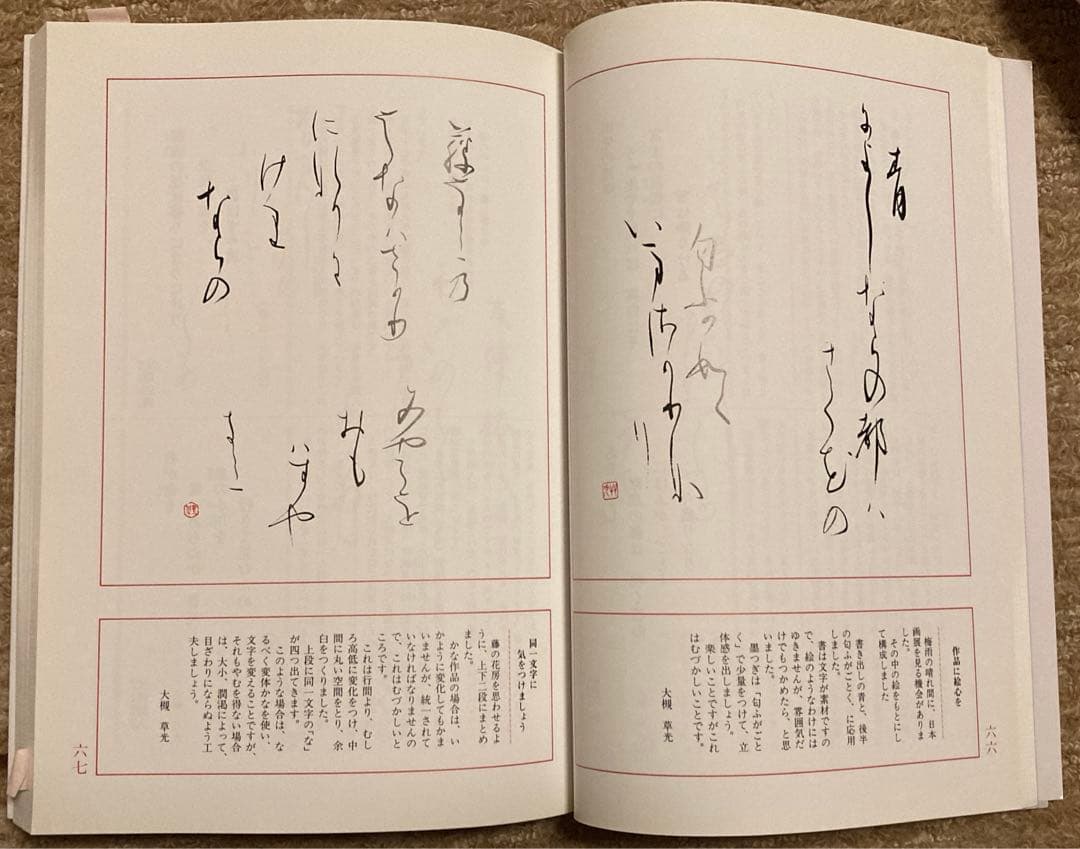 青
によしならの都ハ
さく花の
匂ふか如く
いまさかりな
り
作品に絵心を
梅雨の晴れ間に、日本
画展を見る機会がありま
した。
その中の絵をもとにし
て構成しました
書き出しの青と、後半
の匂ふがごとく、に応用
しました。
書は文字が素材ですの
で、絵のようなわけには
ゆきませんが、雰囲気だ
けでもつかめたら、と思
いました。
墨つぎは「匂ふがごと
く」で少量をつけて、立
体感を出しましょう。
楽しいことですがこれ
はむづかしいことです。
大槻 草光
六六
藤なみ乃
はなハさかり
になりに
けり
ならの
みやこを
おも
ほすや
きみ
同一文字に
気をつけましょう
藤の花房を思わせるよ
うに、上下二段にまとめ
ました。
かな作品の場合は、い
かように変化してもかま
いませんが、統一されて
いなければなりませんの
で、これはむづかしいと
ころです。
これは行間より、むし
ろ高低に変化をつけ、中
間に丸い空間をとり、余
白をつくりました。
上段に同一文字の「な」
が四つ出てきます。
このような場合は、な
るべく変体かなを使い、
文字を変えることですが、
それもやむを得ない場合
は、大小、潤渇によって、
目ざわりにならぬよう工
夫しましょう。
大槻 草光
六七